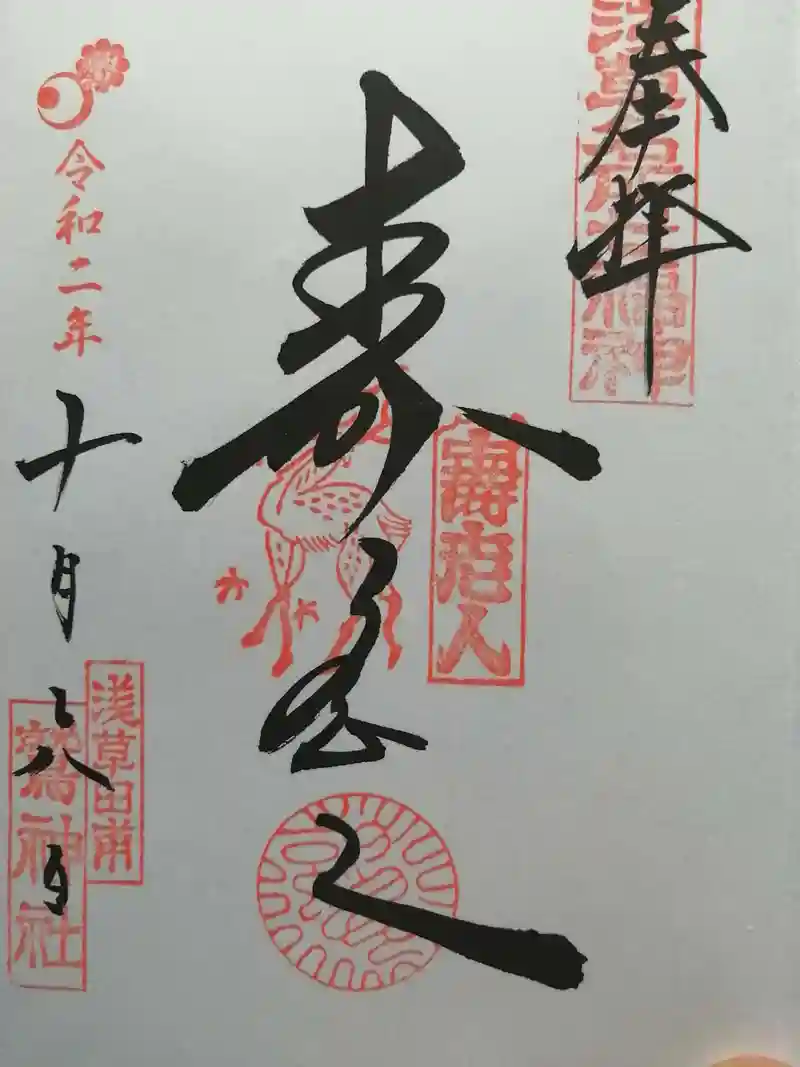 奉拝
浅草名所七福神
寿老人
壽老人
令和二年
十月六日
浅草田甫
鷲神社